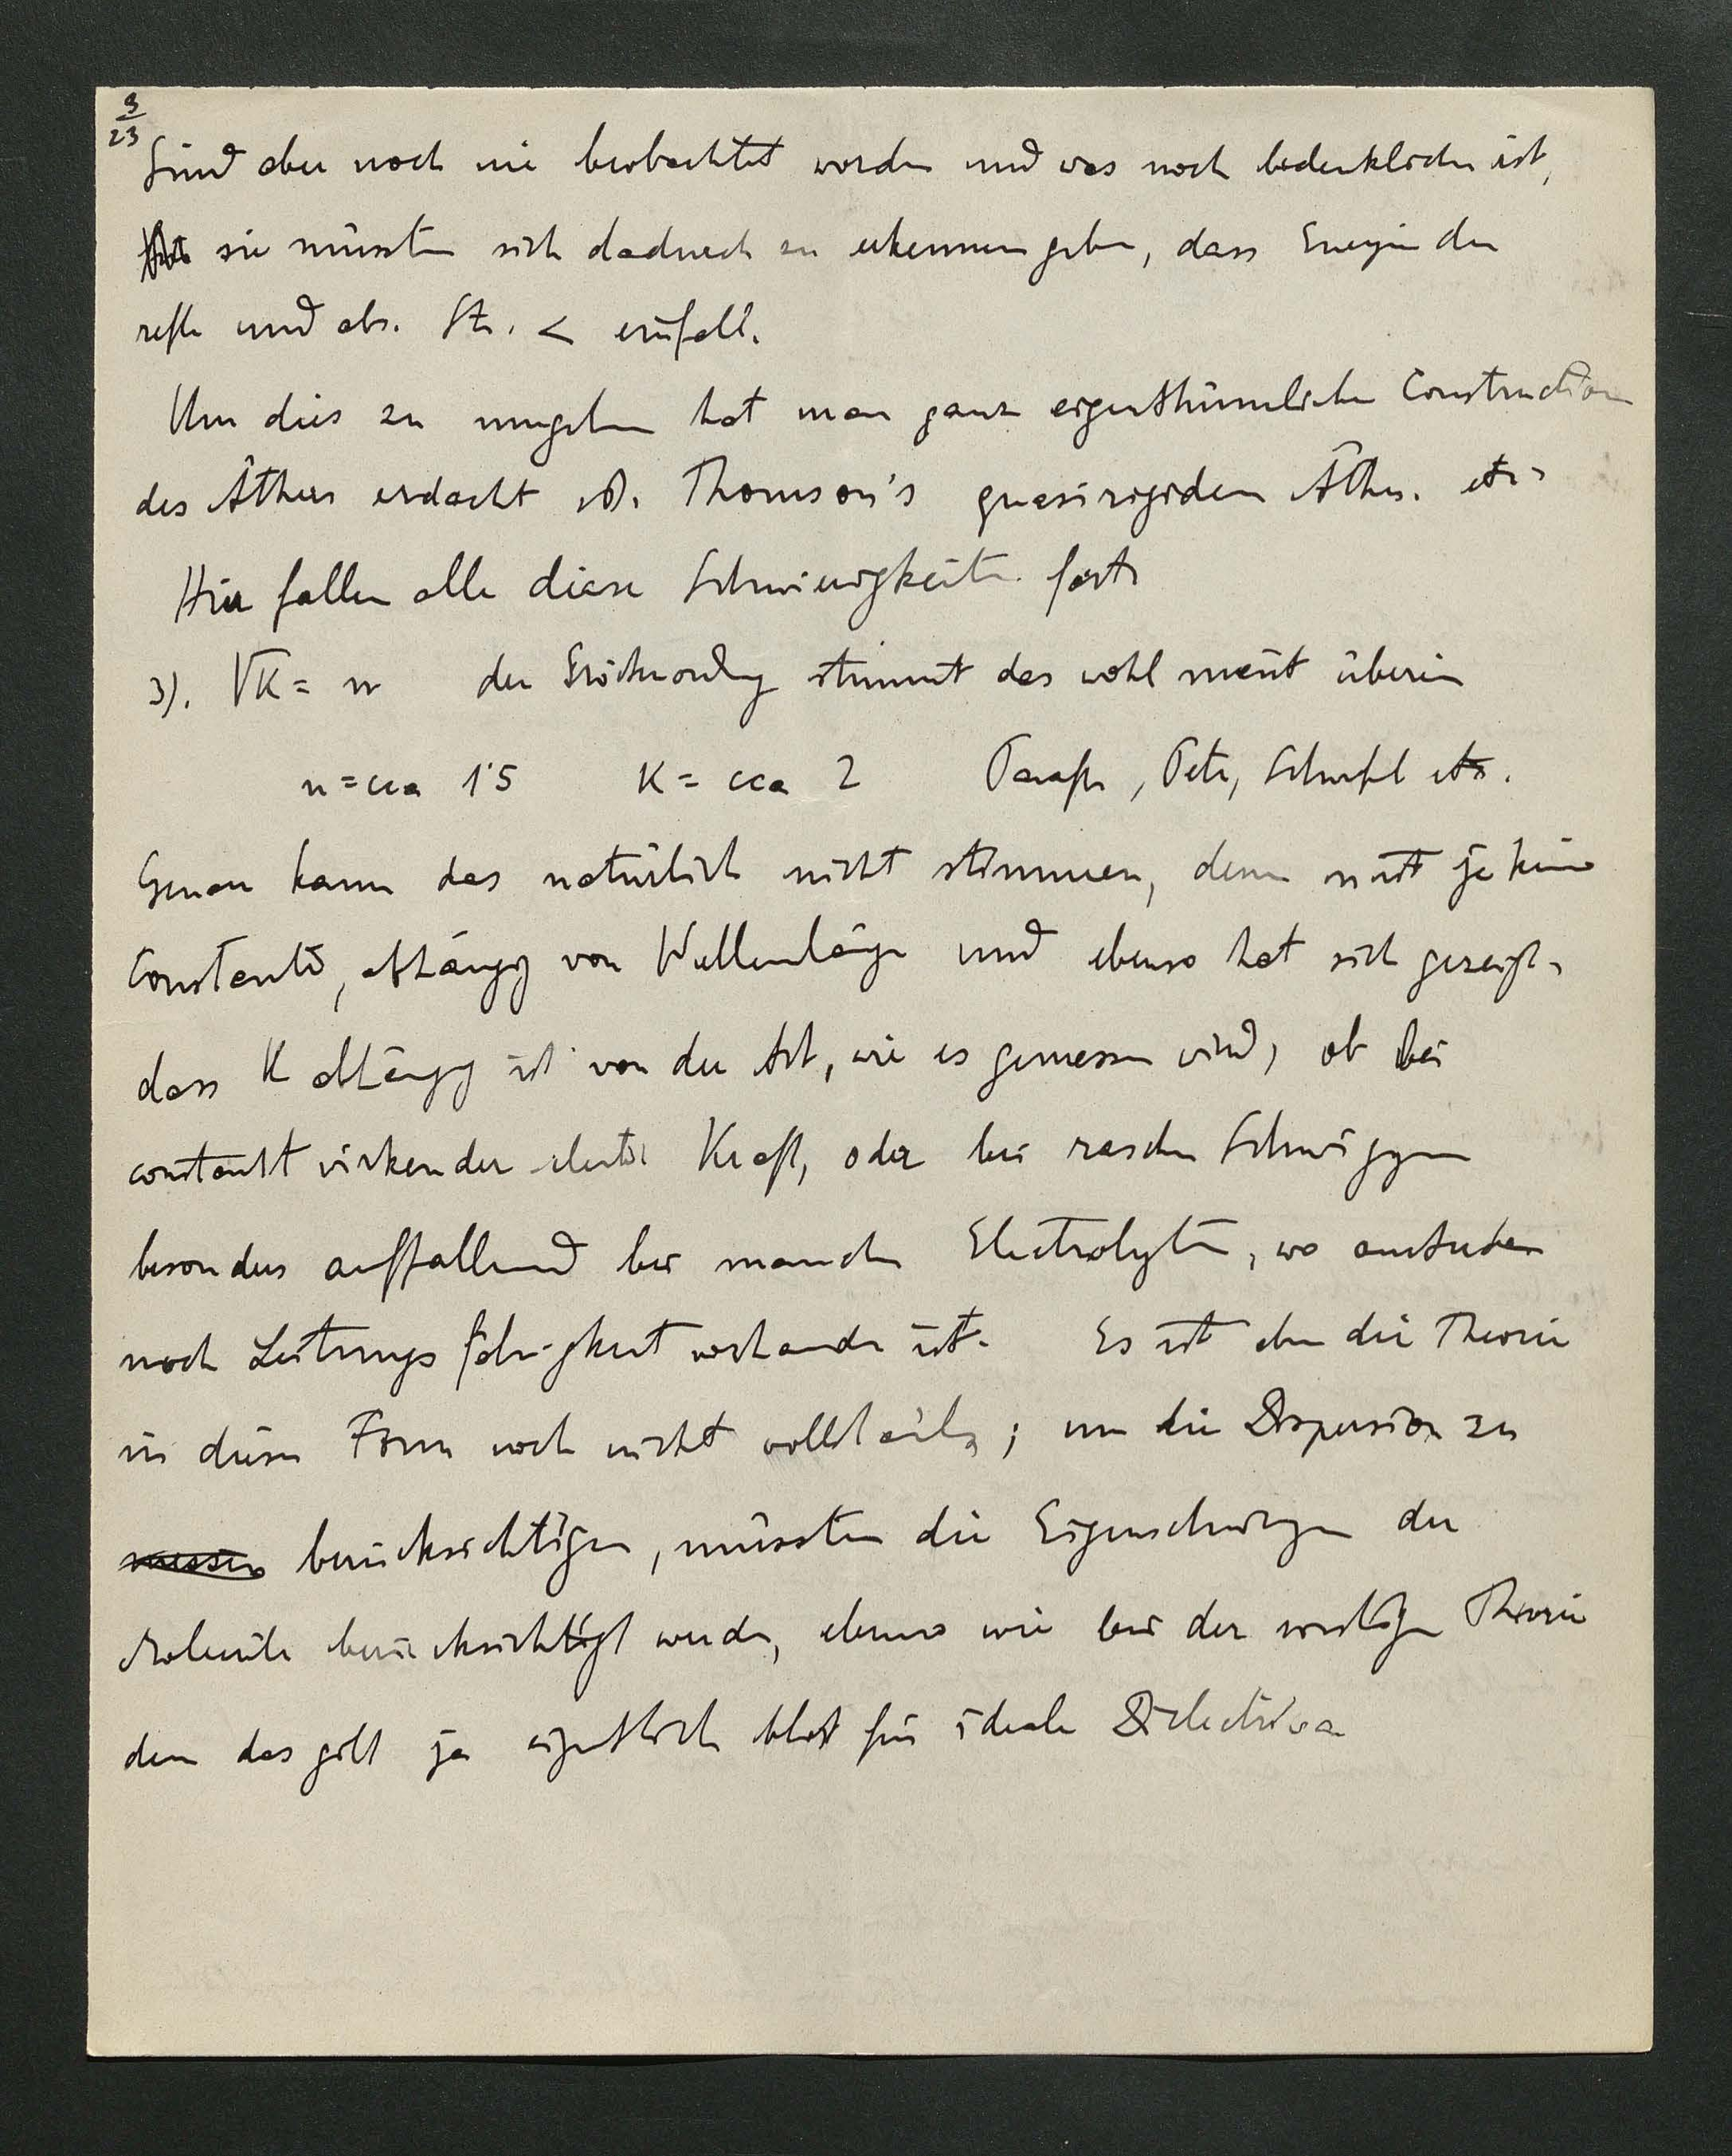 9
23
Sind aber noch nie beobachtet worden und was noch bedenklicher ist,
sie müssten sich dadurch zu erkennen geben, dass Energie der
refle und abs. Str. < einfall.
Um dies zu umgehen hat man ganz eigenthümliche Construction
des Äthers erdacht Thomson's quasirigiden Äther. etc
Hier fallen alle diese Schwierigkeiten fort
3). √K = n der Größenordng stimmt das wohl meist überein
n = cca 1·5 K = cca 2 Paraff, Petr, Schwefel etc.
Genau kann das natürlich nicht stimmen, denn n ist ja keine
Constante, abhängig von Wellenlänge und ebenso hat sich gezeigt,
dass K abhängig ist von der Art, wie es gemessen wird, ob bei
constant wirkender electr Kraft, oder bei raschen Schwiggen
besonders auffallend bei manchen Electrolyten, wo ausserdem
noch Leitungsfähigkeit vorhanden ist. Es ist eben die Theorie
in dieser Form noch nicht vollständig; um die Dispersion zu
messen berücksichtigen, müssten die Eigenschwingen der
Moleküle berücksichtigt werden, ebenso wie bei der sonstigen Theorie
denn das gilt ja eigentlich bloß für ideale Dielectrica